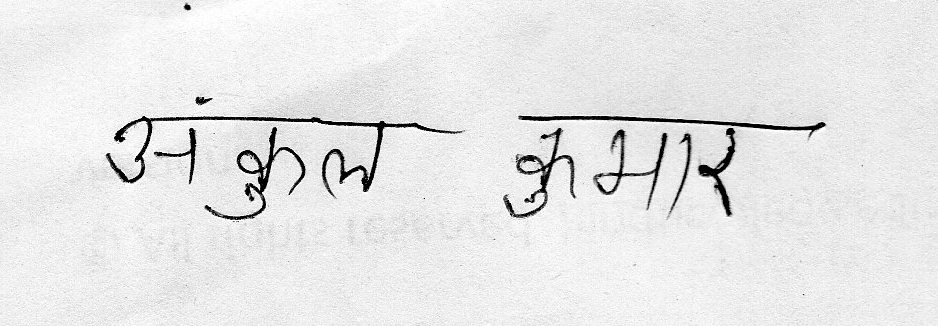 अंकुल कुमार